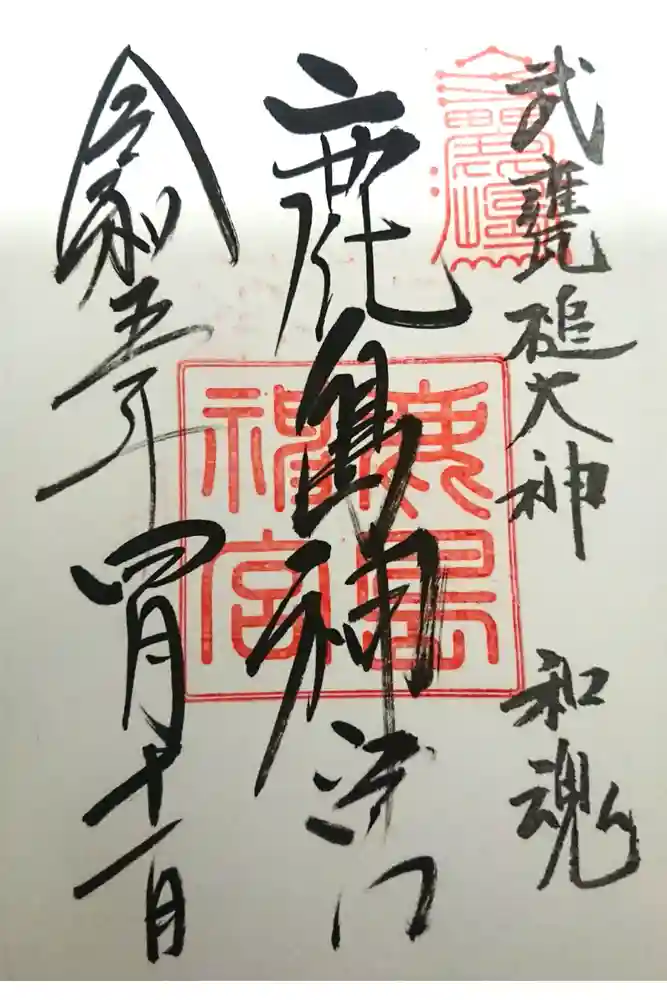 武甕槌大神 和魂
鹿島神
鹿島
神宮
令和五年四月十一日